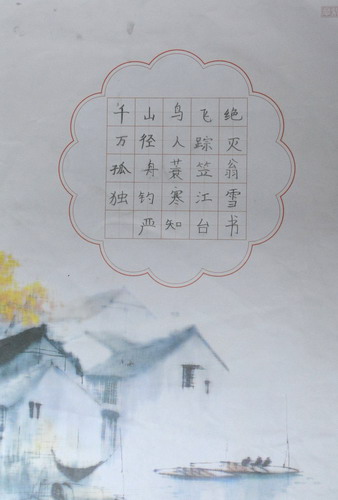 千山鸟飞绝
万径人踪灭
孤舟蓑笠翁
独钓寒江雪
严知台书